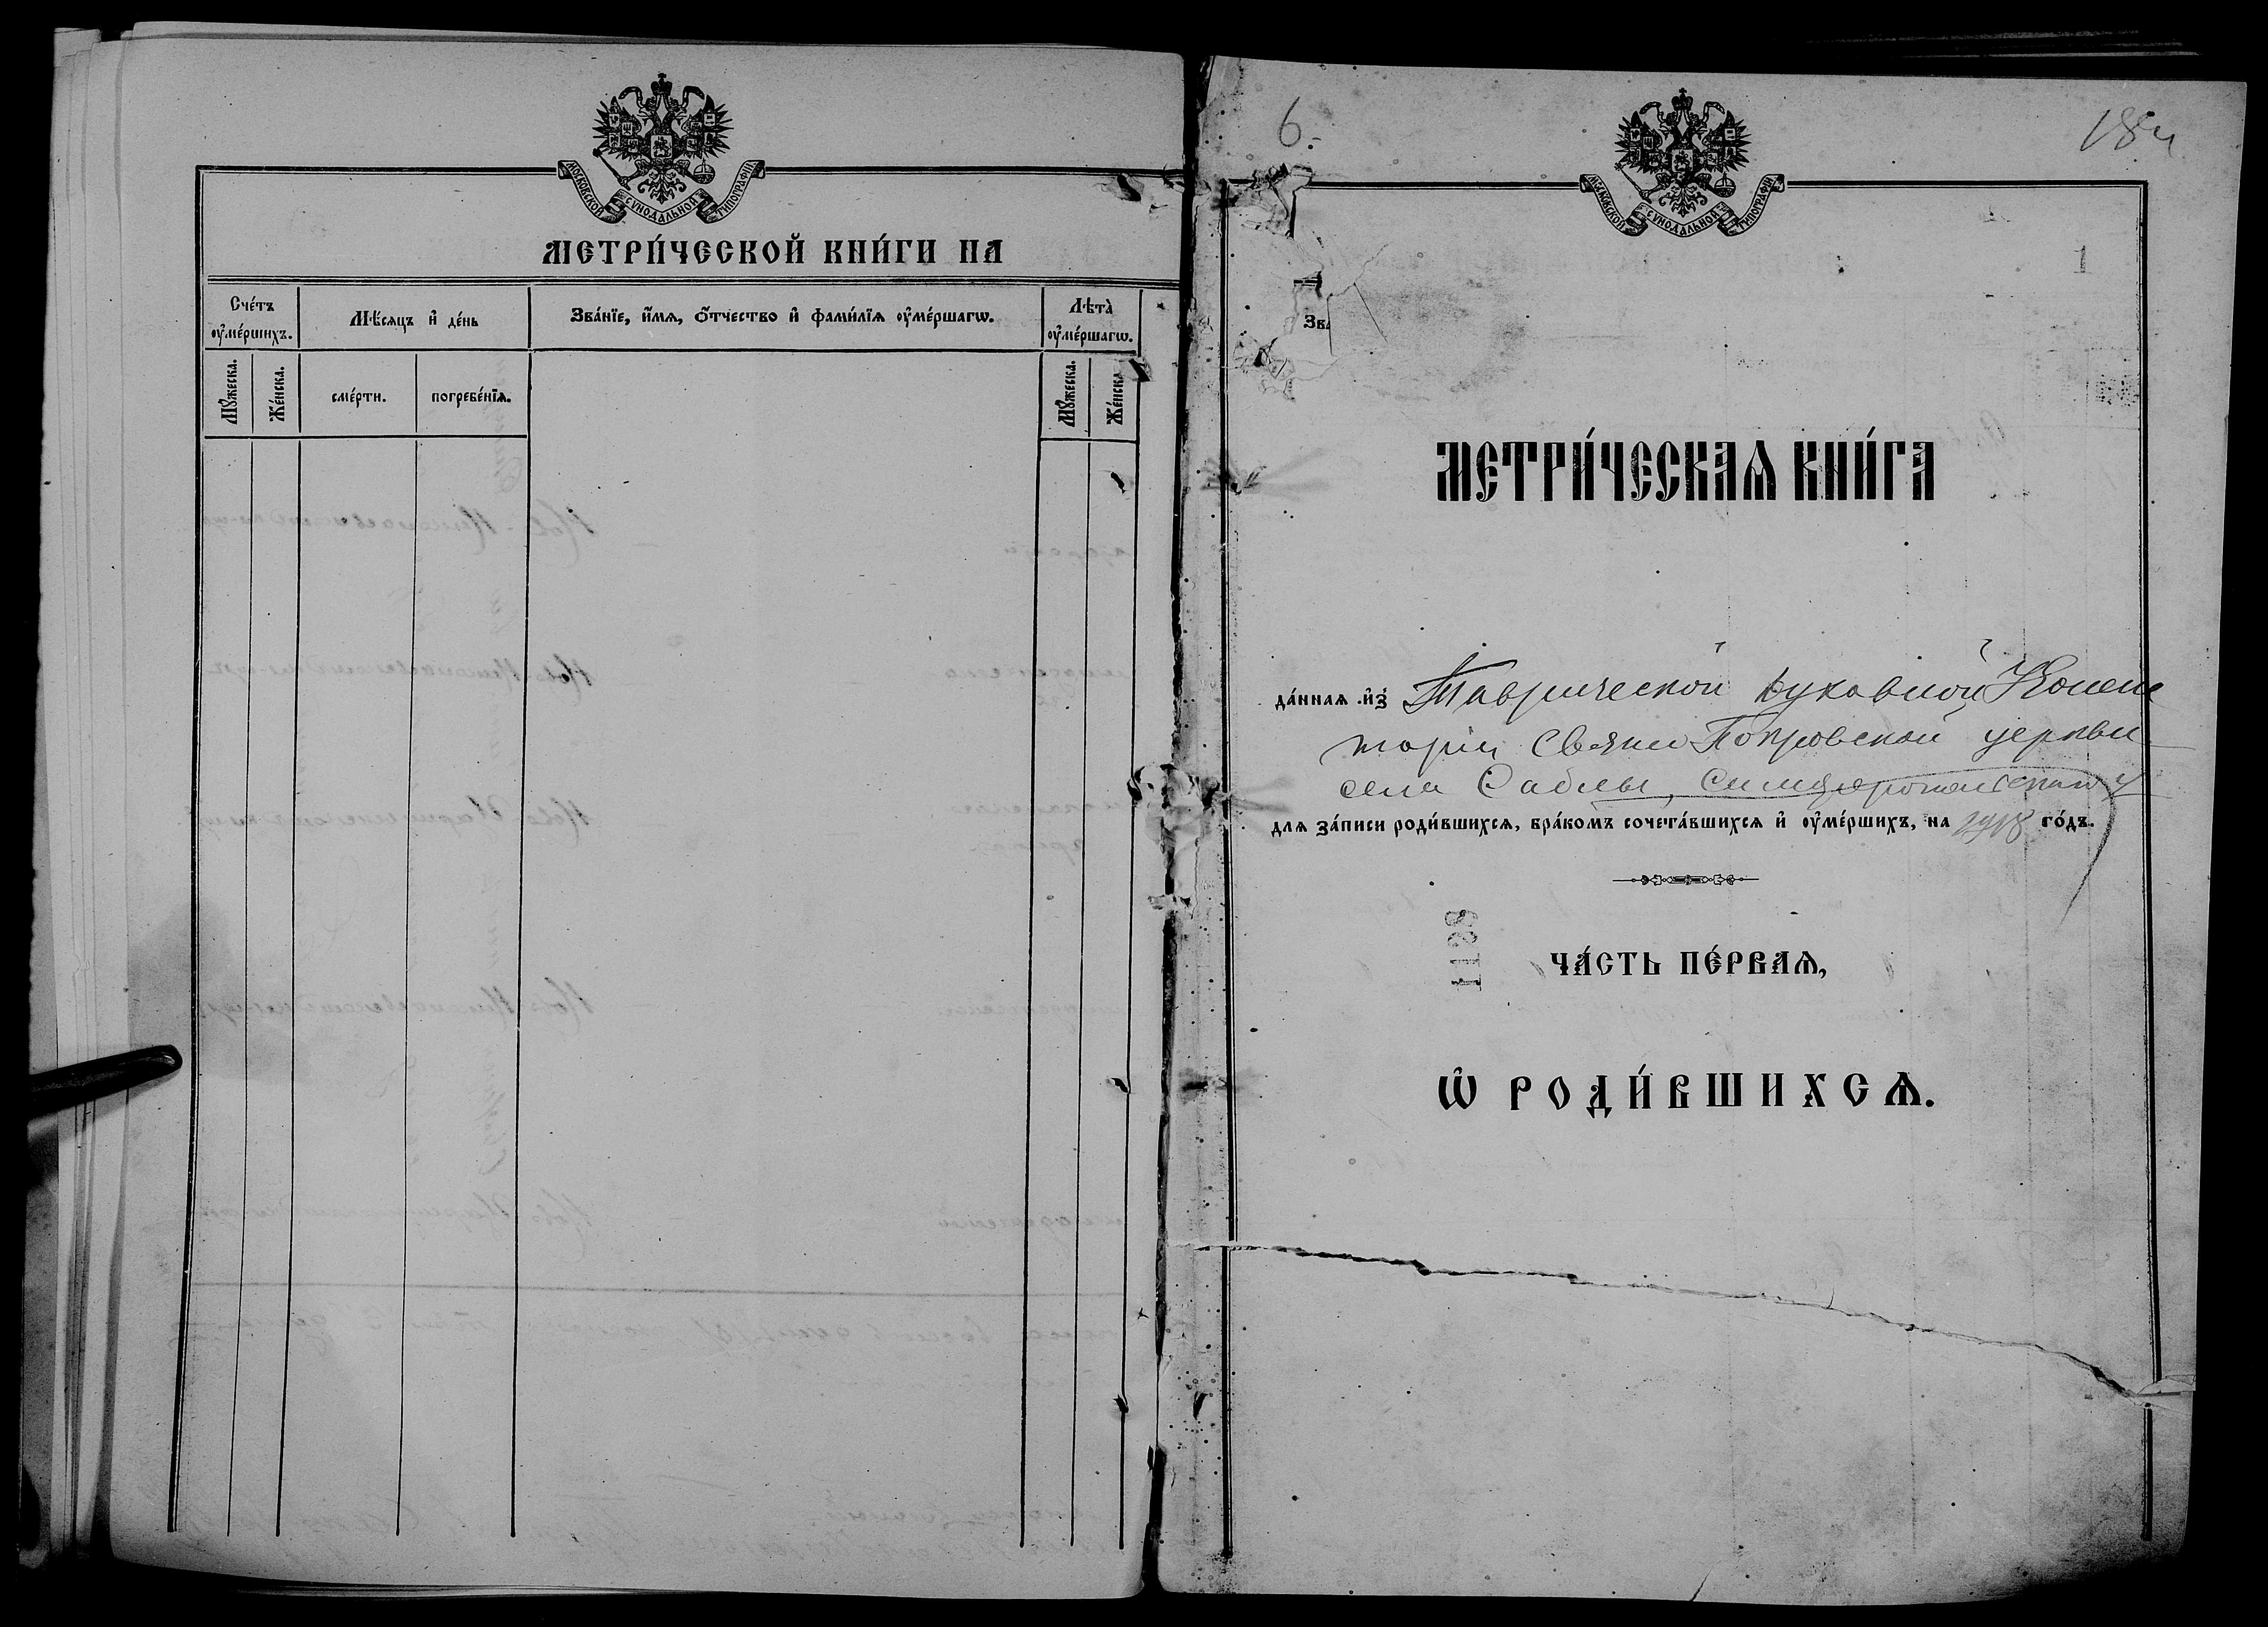 МОСКОВСКОЙ СѴНОДАЛЬНОЙ ТИПОГРАФІИ
МЕТРИ́ЧЕСКОЙ КНИ́ГИ НА
Сче́тъ ᲂу҆ме́ршихъ.
Мѣ́сяцъ и҆ де́нь
Зва́нїе, и҆́мѧ, ѻ҆́тчество и҆ фами́лїѧ ᲂу҆ме́ршагѡ.
Лѣта̀ ᲂу҆ме́ршагѡ.
Мꙋ́жеска.
Же́нска.
сме́рти.
погребе́нїѧ.
Мꙋ́жеска.
Же́нска
6.
МОСКОВСКОЙ СѴНОДАЛЬНОЙ ТИПОГРАФІИ
1
Зва
МЕТРИ́ЧЕСКАѦ КНИ́ГА
да́ннаѧ и҆з̾ Таврической духовной Консис
торіи Свято Покровской церкви
села Саблы, Симферопольскаго у
для за́писи роди́вшихсѧ, бра́комъ сочета́вшихсѧ и҆ ᲂу҆ме́ршихъ, на 1918 го́дъ.
1138
ЧА́СТЬ ПЕ́РВАѦ,
Ѽ РОДИ́ВШИХСѦ.